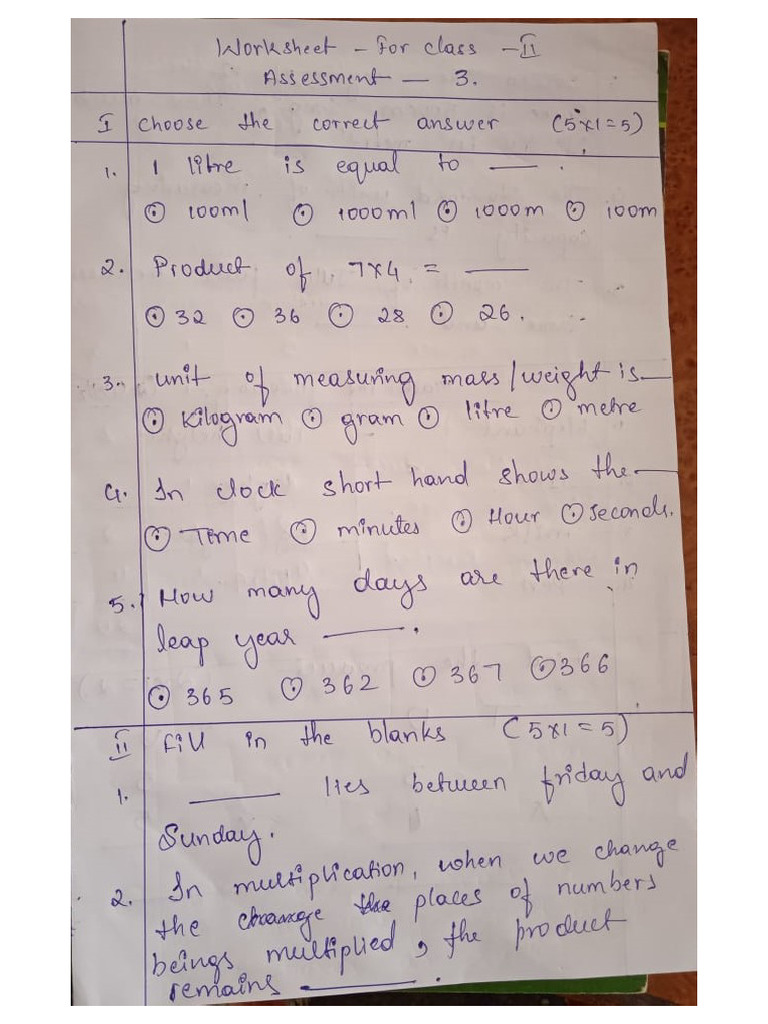 Worksheet - for class - II
Assessment - 3.
I choose the correct answer (5x1=5)
1. 1 litre is equal to ___ .
⊙ 100ml ⊙ 1000ml ⊙ 1000m ⊙ 100m
2. Product of 7x4 = ___
⊙ 32 ⊙ 36 ⊙ 28 ⊙ 26.
3. unit of measuring mass/weight is ___
⊙ kilogram ⊙ gram ⊙ litre ⊙ metre
4. In clock short hand shows the ___
⊙ Time ⊙ minutes ⊙ Hour ⊙ seconds.
5. How many days are there in
leap year ___ .
⊙ 365 ⊙ 362 ⊙ 367 ⊙ 366
II Fill in the blanks (5x1=5)
1. ___ lies between friday and
Sunday.
2. In multiplication, when we change
the change the places of numbers
beings multiplied, the product
remains ___ .